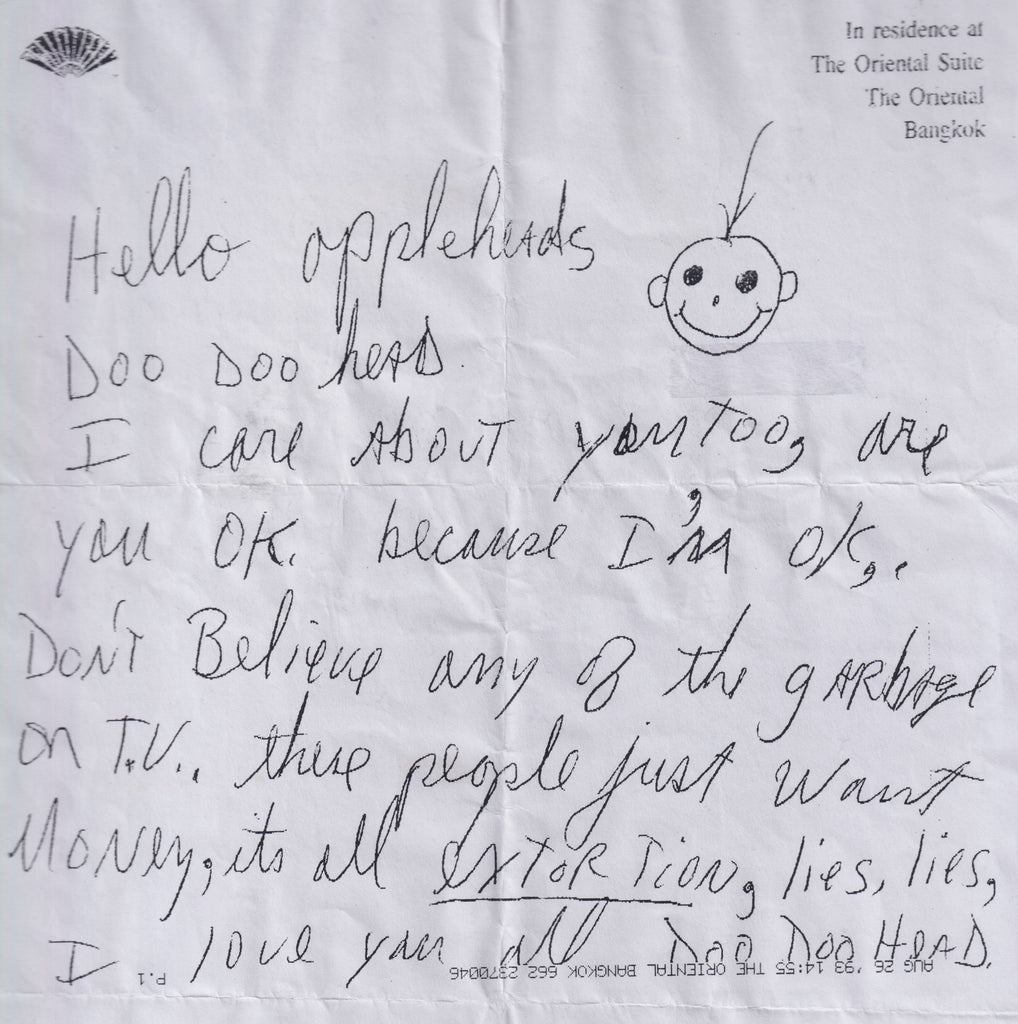 In residence at
The Oriental Suite
The Oriental
Bangkok
Hello appleheads
Doo Doo head
I care about you too, are
you OK. because I'm OK,.
Don't Believe any of the garbage
on T.V., these people just want
Money, its all extortion, lies, lies,
I love you all Doo Doo Head.
AUG 26 '93 14:55 THE ORIENTAL BANGKOK 662 2370046 P.1